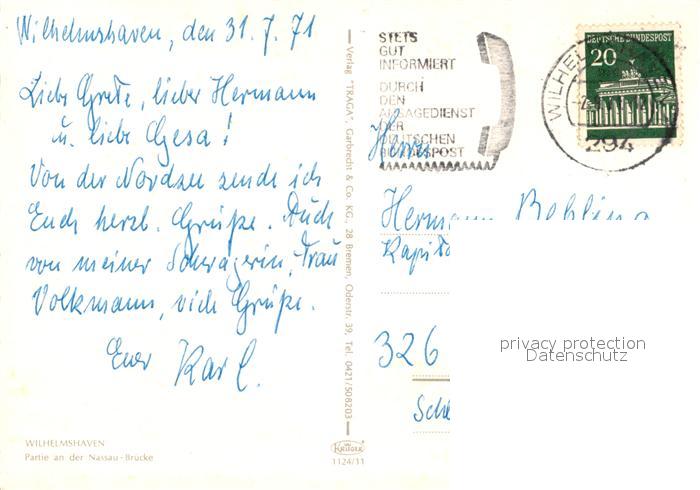 Wilhelmshaven, den 31. 7. 71
Liebe Grete, lieber Hermann
u. liebe Gesa!
Von der Nordsee sende ich
Euch herzl. Grüße. Auch
von meiner Schwägerin, Frau
Volkmann, viele Grüße.
Euer Karl.
WILHELMSHAVEN
Partie an der Nassau-Brücke
Verlag "TRAGA", Garbrecht & Co. KG., 28 Bremen, Odenstr. 39, Tel. 0421/508203
KRÜGER
1124/11
STETS
GUT
INFORMIERT
DURCH
DEN
ANSAGEDIENST
DER
DEUTSCHEN
BUNDESPOST
DEUTSCHE BUNDESPOST
20
294
Herrn
Hermann
326
privacy protection
Datenschutz